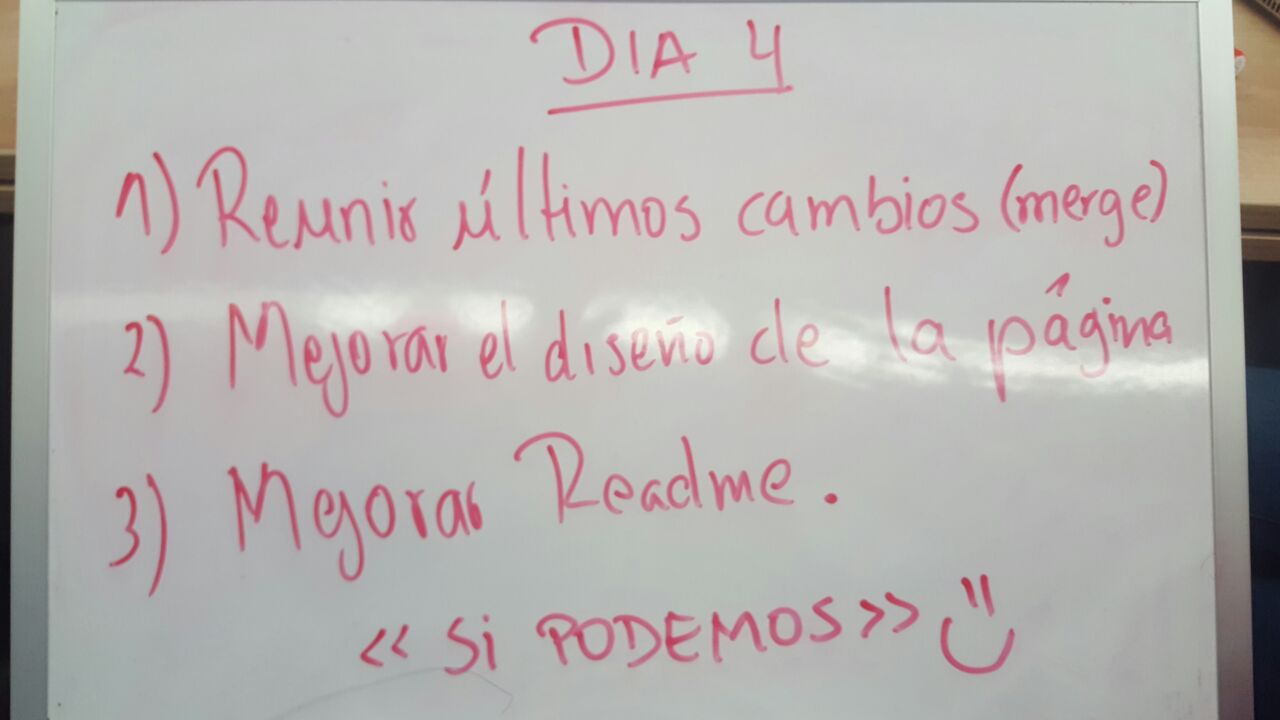 DIA 4
1) Reunir últimos cambios (merge)
2) Mejorar el diseño de la página
3) Mejorar Readme.
<< Si PODEMOS >>